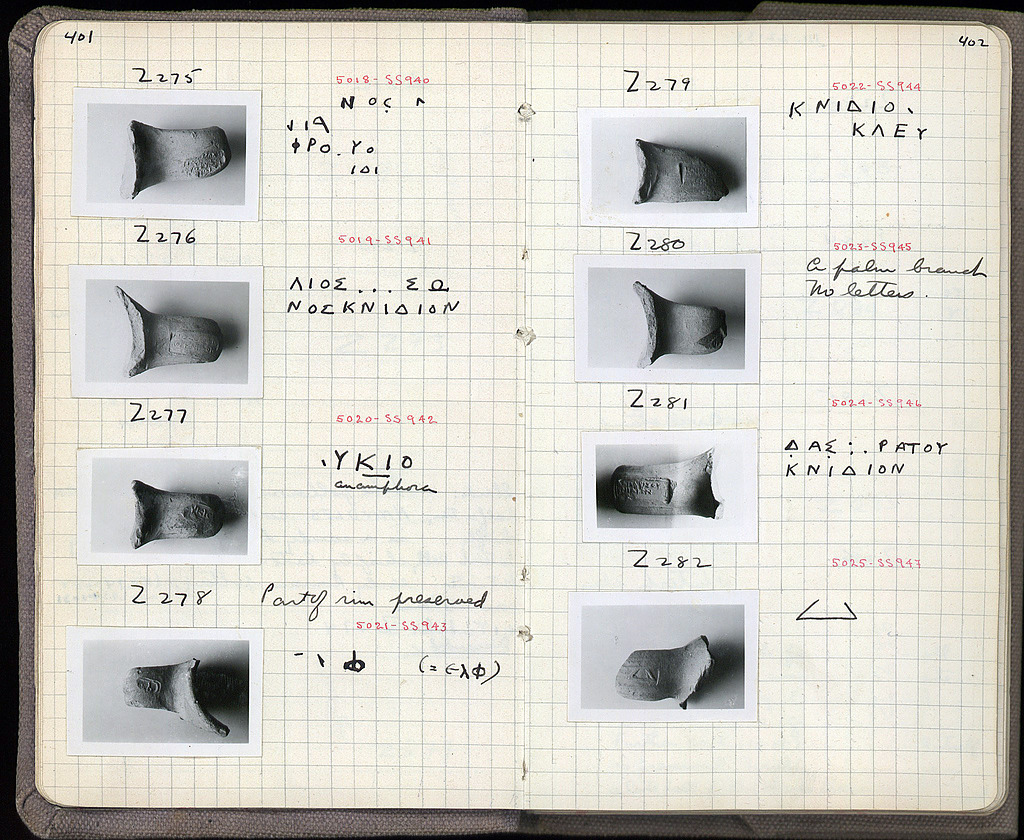 401
Z275
5018-SS940
ΝΟΣ
ΦΡΟ.ΥΟ
ΙΔΙ
Z276
5019-SS941
ΛΙΟΣ...ΣΩ
ΝΟΣΚΝΙΔΙΟΝ
Z277
5020-SS942
ΥΚΙΟ
an amphora
Z278 Part of rim preserved
5021-SS943
(= ελφ)
402
Z279
5022-SS944
ΚΝΙΔΙΟ
ΚΛΕΥ
Z280
5023-SS945
A palm branch
No letters.
Z281
5024-SS946
ΔΑΣ:.ΡΑΤΟΥ
ΚΝΙΔΙΟΝ
Z282
5025-SS947